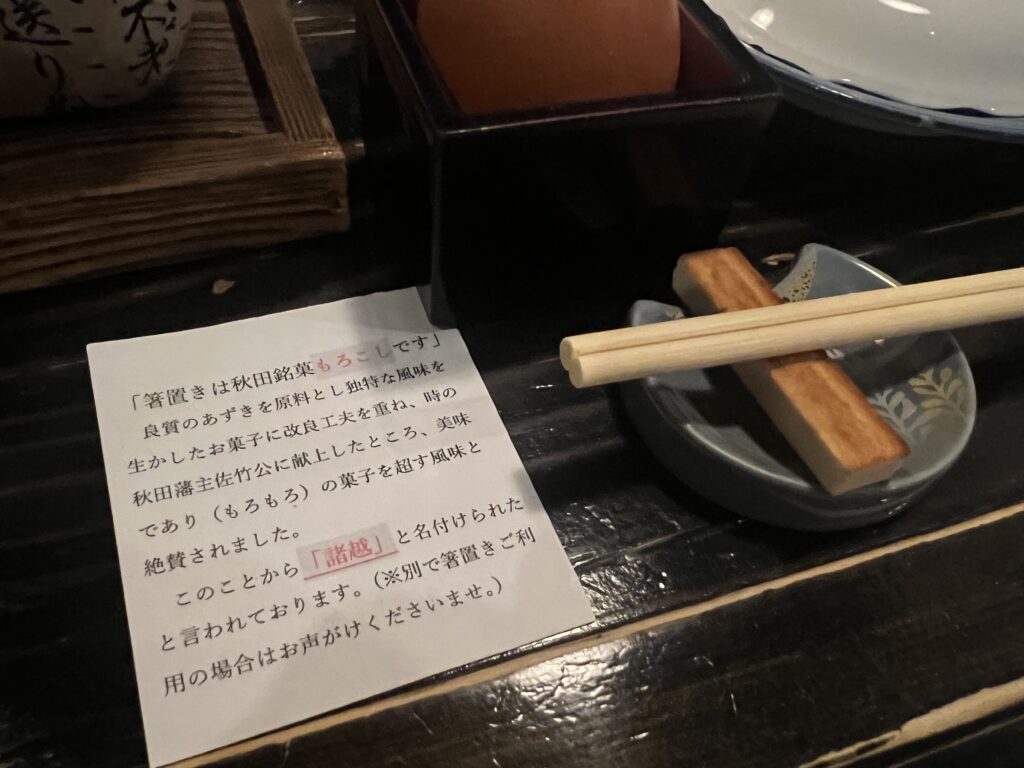 送り
「箸置きは秋田銘菓もろこしです」
良質のあずきを原料とし独特な風味を
生かしたお菓子に改良工夫を重ね、時の
秋田藩主佐竹公に献上したところ、美味
であり（もろもろ）の菓子を超す風味と
絶賛されました。
このことから「諸越」と名付けられた
と言われております。（※別で箸置きご利
用の場合はお声がけくださいませ。）